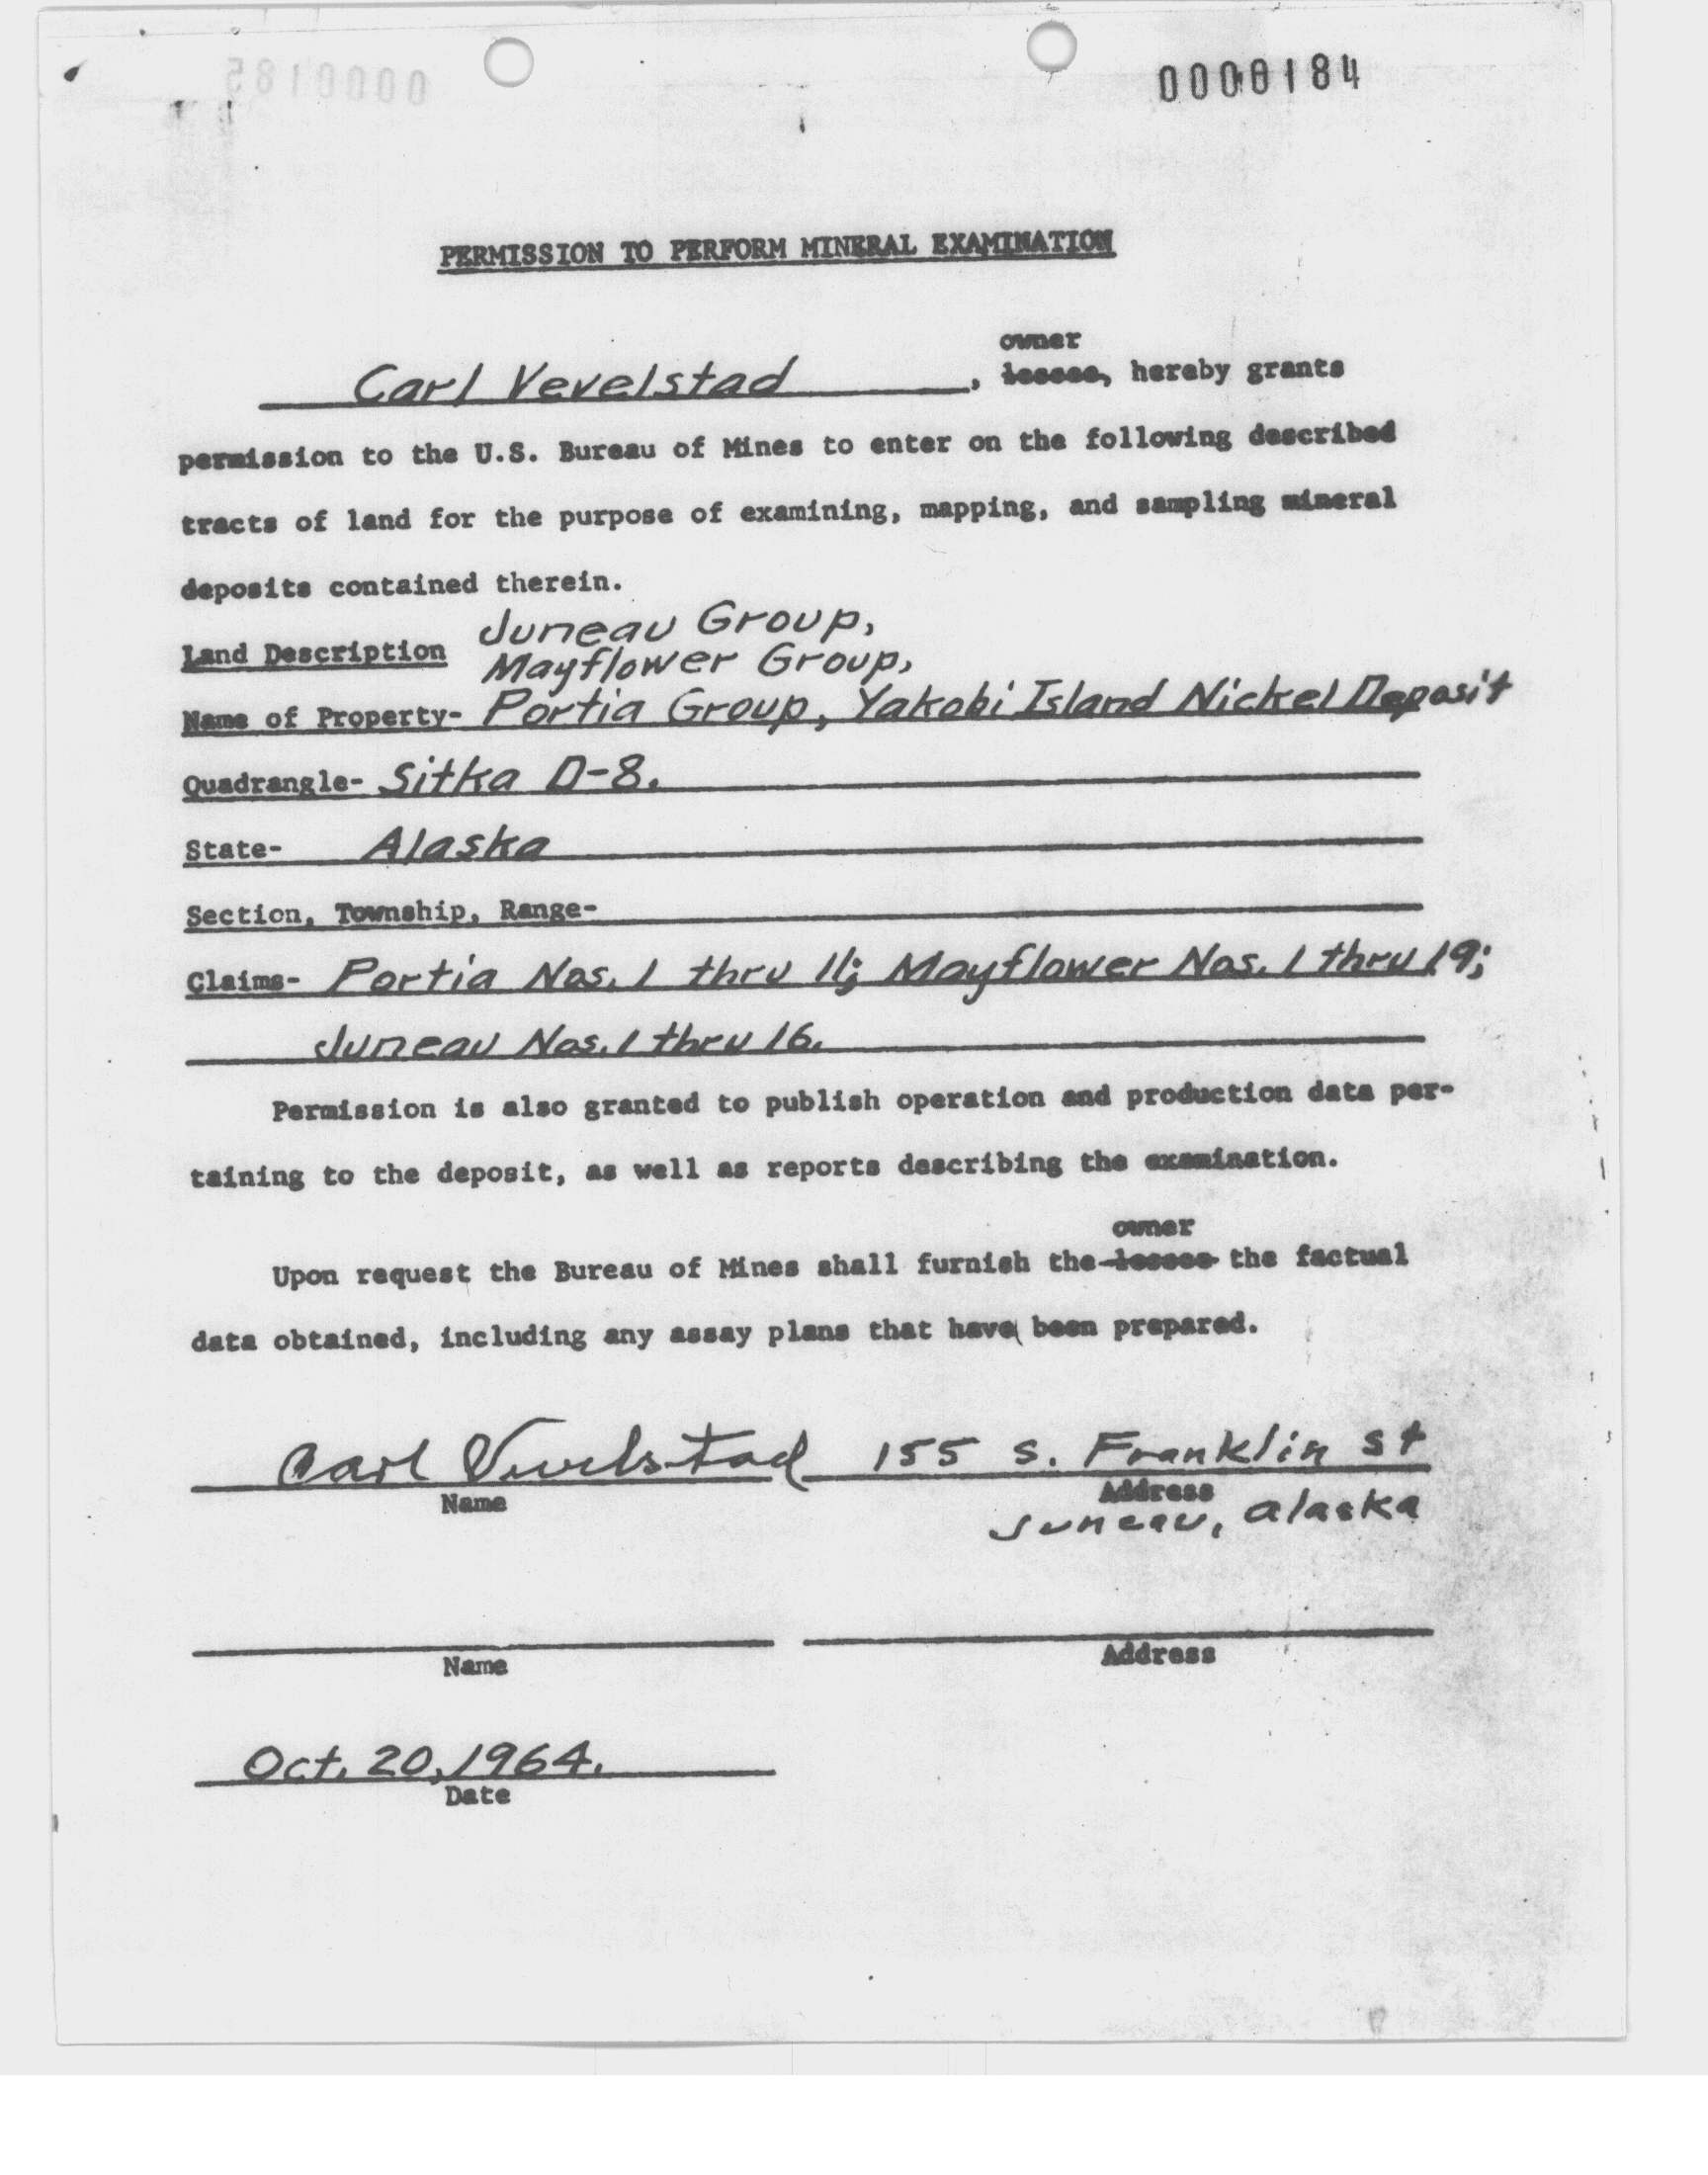 0000185
0000184
PERMISSION TO PERFORM MINERAL EXAMINATION
owner
Carl Vevelstad, lessee, hereby grants
permission to the U.S. Bureau of Mines to enter on the following described
tracts of land for the purpose of examining, mapping, and sampling mineral
deposits contained therein.
Juneau Group,
Land Description Mayflower Group,
Name of Property- Portia Group, Yakobi Island Nickel Deposit
Quadrangle- Sitka D-8.
State- Alaska
Section, Township, Range-
Claims- Portia Nos. 1 thru 11; Mayflower Nos. 1 thru 19;
Juneau Nos. 1 thru 16.
Permission is also granted to publish operation and production data per-
taining to the deposit, as well as reports describing the examination.
owner
Upon request the Bureau of Mines shall furnish the lessee the factual
data obtained, including any assay plans that have been prepared.
Carl Vevelstad 155 S. Franklin St
Name Address
Juneau, Alaska
Name Address
Oct. 20, 1964.
Date